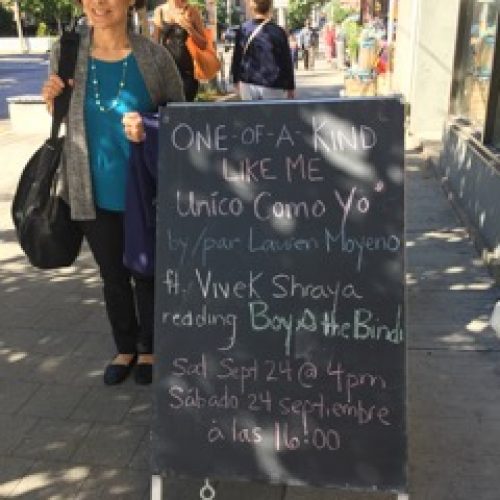 ONE-OF-A-KIND
LIKE ME
Unico Como Yo
by/par Lauren Moyeno
ft. Vivek Shraya
reading Boy & the Bindi
Sat Sept 24 @ 4pm
Sábado 24 septiembre
à las 16:00